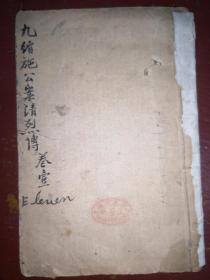 九續施公案清烈傳
卷壹
Eleven